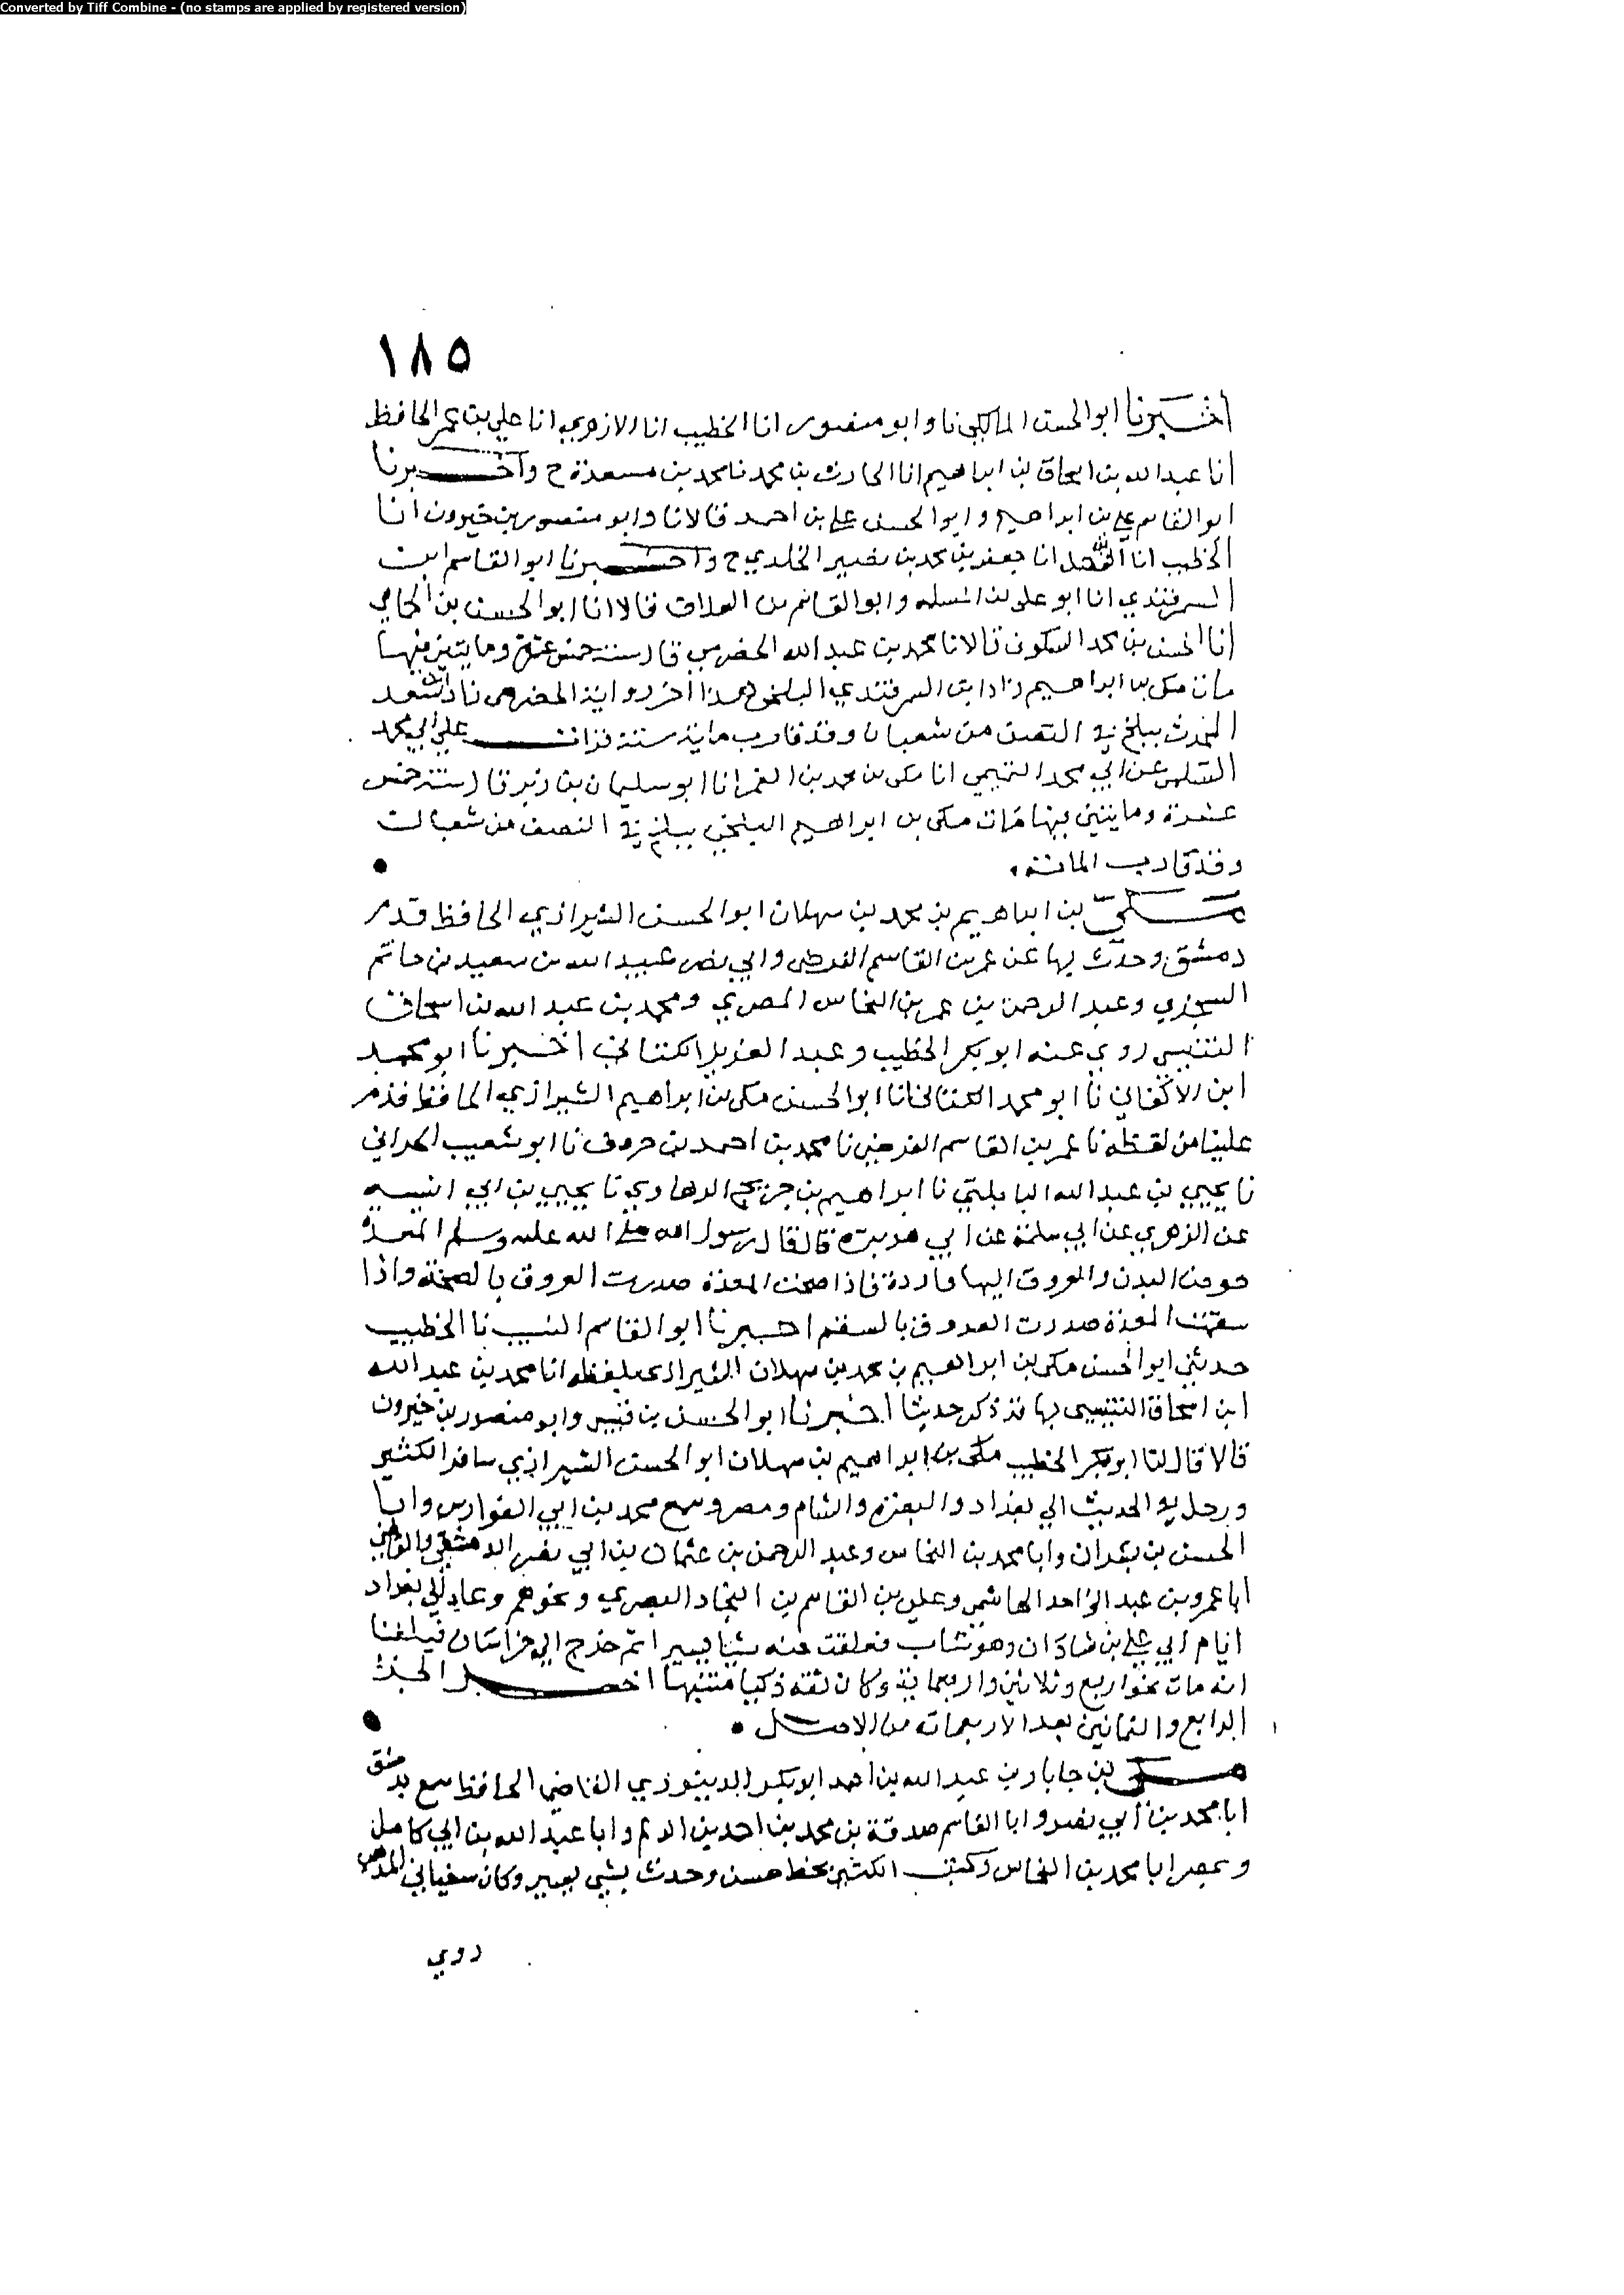 Converted by Tiff Combine - (no stamps are applied by registered version)
١٨٥
اخبرنا ابو الحسن المالكي نا وابو منصور انا الخطيب انا الازهري انا علي بن عمر الحافظ
انا عبد الله بن اسحاق بن ابراهيم انا الحارث بن محمد نا محمد بن مسعدة ح واخبرنا
ابو القاسم علي بن ابراهيم وابو الحسن علي بن احمد قالا نا وابو منصور بن خيرون انا
الخطيب انا انا جعفر بن محمد بن نصير الخلدي ح واخبرنا ابو القاسم ابن
السمرقندي انا ابو علي بن المسلمه وابو القاسم بن العلاف قالا انا ابو الحسن بن الحمامي
انا الحسن بن محمد السكوني قالا نا محمد بن عبد الله الحضرمي قال سنة خمس عشرة ومايتين فيها
مات مكي بن ابراهيم زاد ابن السمرقندي البلخي هذا اخر رواية الحضرمي نا
ببلخ في النصف من شعبان وقد قارب ماية سنة قرات علي ابي محمد
السلمي عن ابي محمد التميمي انا مكي بن محمد بن الغمر انا ابو سليمان بن زبر قال سنة خمس
عشرة ومايتين فيها مات مكي بن ابراهيم البلخي ببلخ في النصف من شعبان
وقد قارب المائة
مكي بن ابراهيم بن محمد بن سهلان ابو الحسن الشيرازي الحافظ قدم
دمشق وحدث بها عن عمر بن القاسم وابي نصر عبيد الله بن سعيد بن حاتم
السجزي وعبد الرحمن بن عمر بن النحاس المصري ومحمد بن عبد الله بن اسحاق
التنيسي روي عنه ابو بكر الخطيب وعبد العزيز الكتاني اخبرنا ابو محمد
ابن الاكفاني نا ابو محمد الكتاني انا ابو الحسن مكي بن ابراهيم الشيرازي الحافظ قدم
علينا من لفظه نا عمر بن القاسم نا محمد بن احمد بن حروف نا ابو شعيب الحراني
نا يحيي بن عبد الله البابلتي نا ابراهيم بن جريج الرهاوي نا يحيي بن ابي انيسه
عن الزهري عن ابي سلمة عن ابي هريرة قال قال رسول الله صلى الله عليه وسلم المعدة
حوض البدن والعروق اليها واردة فاذا صحت المعدة صدرت العروق بالصحة واذا
سقمت المعدة صدرت العروق بالسقم اخبرنا ابو القاسم النسيب نا الخطيب
حدثني ابو الحسن مكي بن ابراهيم بن محمد بن سهلان الشيرازي بلفظه انا محمد بن عبد الله
ابن اسحاق التنيسي بها فذكر حديثا اخبرنا ابو الحسن بن قبيس وابو منصور بن خيرون
قالا قال لنا ابو بكر الخطيب مكي بن ابراهيم بن سهلان ابو الحسن الشيرازي سافر الكثير
ورحل في الحديث الي بغداد والبصرة والشام ومصر وسمع محمد بن ابي الفوارس وابا
الحسن بن بشران وابا محمد بن النحاس وعبد الرحمن بن عثمان بن ابي نصر الدمشقي والقاضي
ابا عمر بن عبد الواحد الهاشمي وعلي بن القاسم بن النجاد البصري ونحوهم وعاد الي بغداد
ايام ابي علي بن شاذان وهو شاب فعلقت عنه شيئا يسيرا ثم خرج الي خراسان فبلغنا
انه مات نحو اربع وثلاثين واربعماية وكان ثقة ذكيا متنبها اخر الجزء
الرابع والثمانين بعد الاربعمائة من الاصل
مكي بن جابار بن عبد الله بن احمد ابو بكر الدينوري القاضي الحافظ سمع بدمشق
ابا محمد بن ابي نصر وابا القاسم صدقة بن محمد بن احمد بن وابا عبد الله بن ابي كامل
وبمصر ابا محمد بن النحاس وكتب الكثير بخط حسن وحدث بشي يسير وكان سفياني المذهب
روي